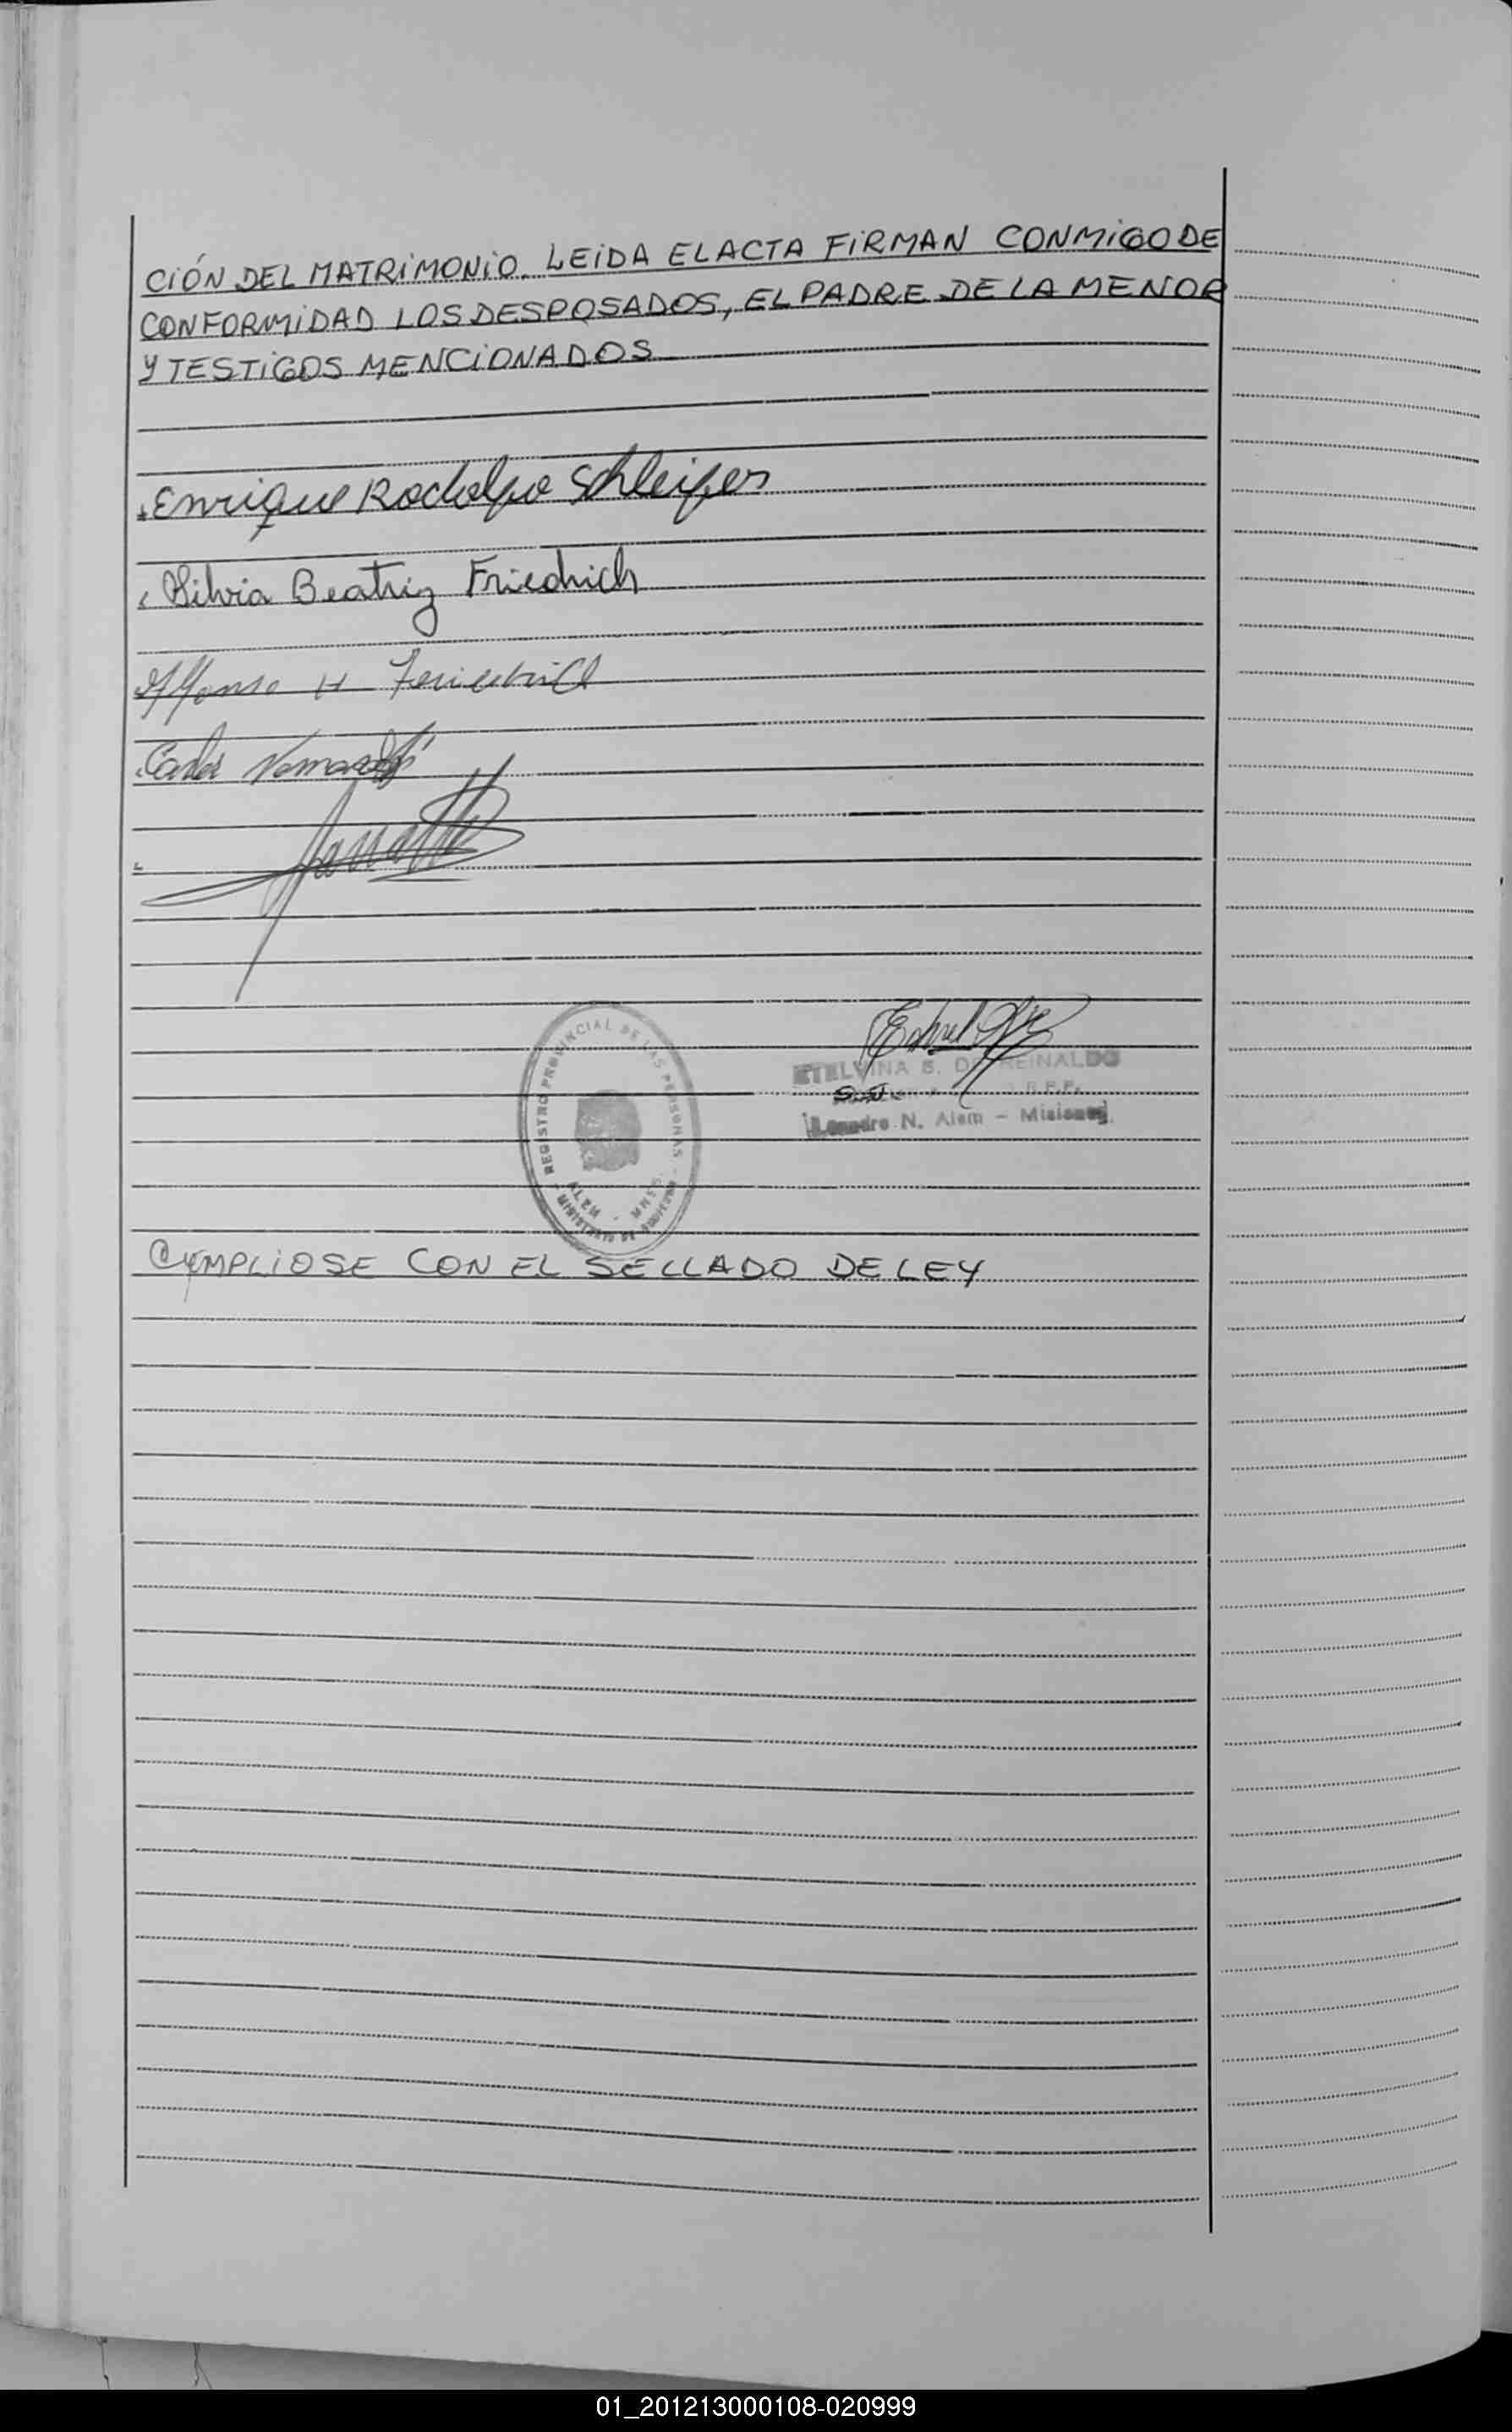 CIÓN DEL MATRIMONIO. LEIDA EL ACTA FIRMAN CONMIGO DE
CONFORMIDAD LOS DESPOSADOS, EL PADRE DE LA MENOR
Y TESTIGOS MENCIONADOS
Enrique Rodolfo Schleifer
Silvia Beatriz Friedrich
H Friedrich
Carlos
REGISTRO PROVINCIAL DE LAS PERSONAS
ALEM - MNES
MINISTERIO DE GOBIERNO
ETELVINA B. DE REINALDO
R.P.P.
Leandro N. Alem - Misiones
CUMPLIOSE CON EL SELLADO DE LEY
01_201213000108-020999